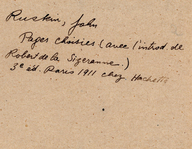 Ruskin, John
Pages choisies (avec l'introd. de
Robert de la Sizeranne.)
3e éd. Paris 1911 chez Hachette